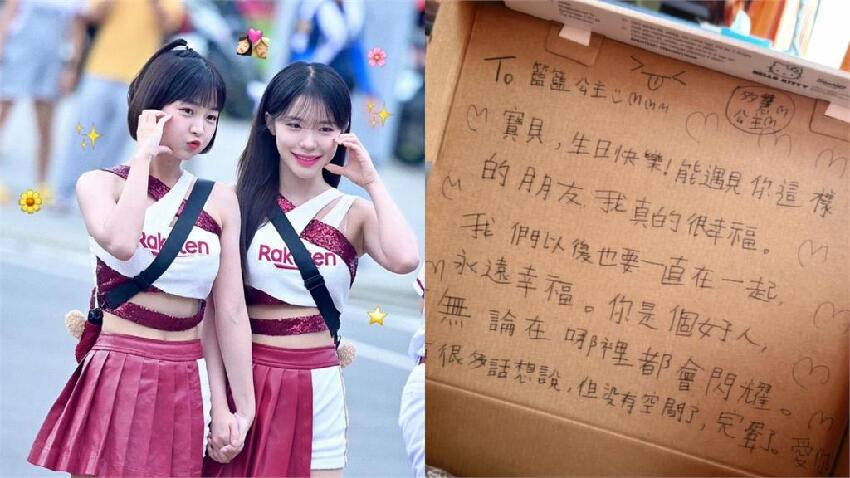 Rakuten
Rakuten
HELLO KITTY
To 籃籃公主
多慧
公主
寶貝，生日快樂！能遇見你這樣
的朋友我真的很幸福。
我們以後也要一直在一起，
永遠幸福。你是個好人，
無論在哪裡都會閃耀。
很多話想說，但沒有空間了，完蛋了。愛你